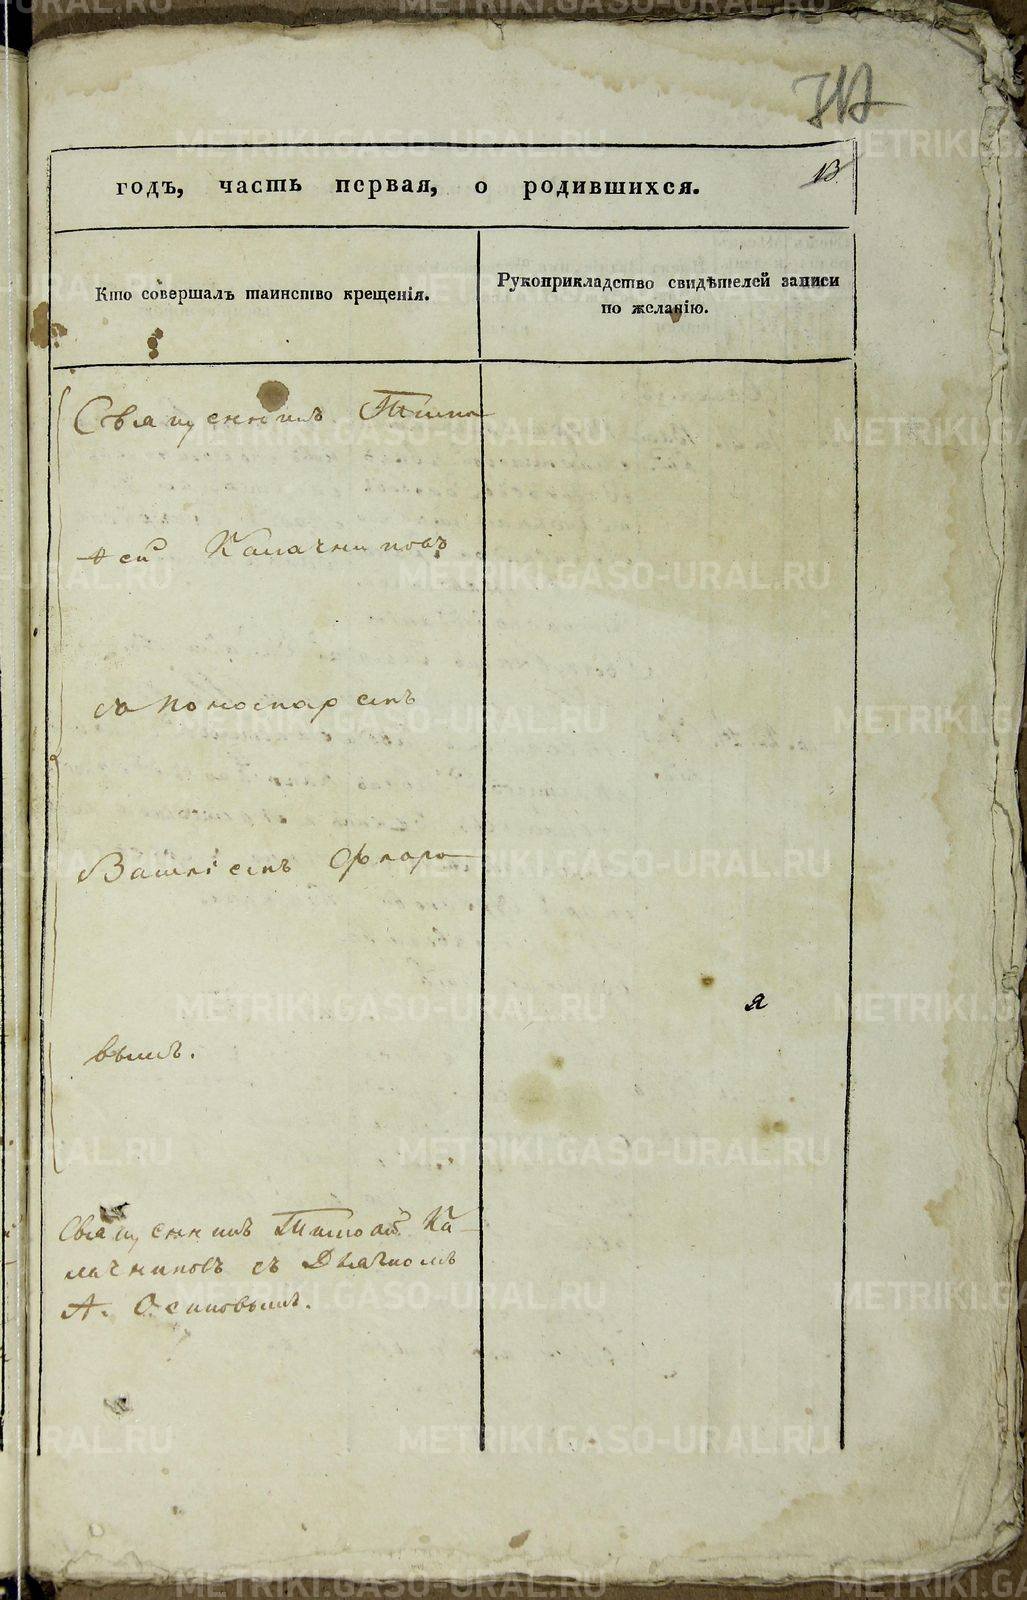 годъ, часть первая, о родившихся.
13
Кто совершалъ таинство крещенія.
Рукоприкладство свидѣтелей записи
по желанію.
Священникъ Тимо
ѳей Калачниковъ
съ пономаремъ
Васильемъ Флоро
вымъ.
я
Священникъ Тимоѳей Ка-
лачниковъ съ Дьячкомъ
А. Осиповымъ.
METRIKI.GASO-URAL.RU